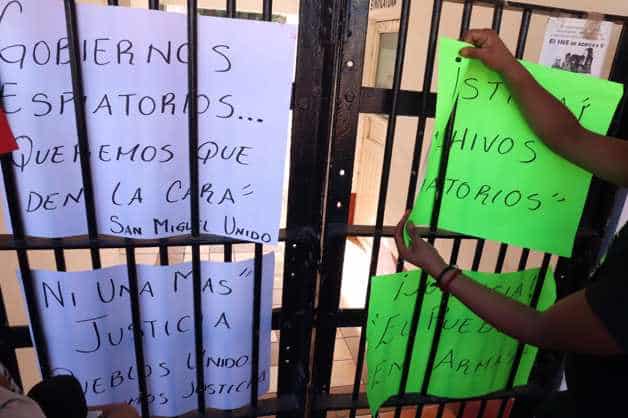 GOBIERNOS
ESPIATORIOS...
QUEREMOS QUE
DEN LA CARA"
SAN MIGUEL UNIDO
NI UNA MAS"
JUSTICIA
PUEBLOS UNIDO
JUSTICIA
¡JUSTICIA!
CHIVOS
EXPIATORIOS"
¡JUSTICIA!
"EL PUEBLO
EN ARMAS